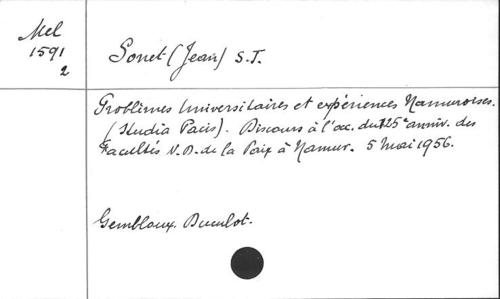 Mel
1591
2
Sonet (Jean) S.J.
Problèmes Universitaires et expériences Namuroises.
(Studia Pacis). Discours à l'occ. du 125e anniv. des
Facultés N.D. de la Paix à Namur. 5 Mai 1956.
Gembloux. Duculot.